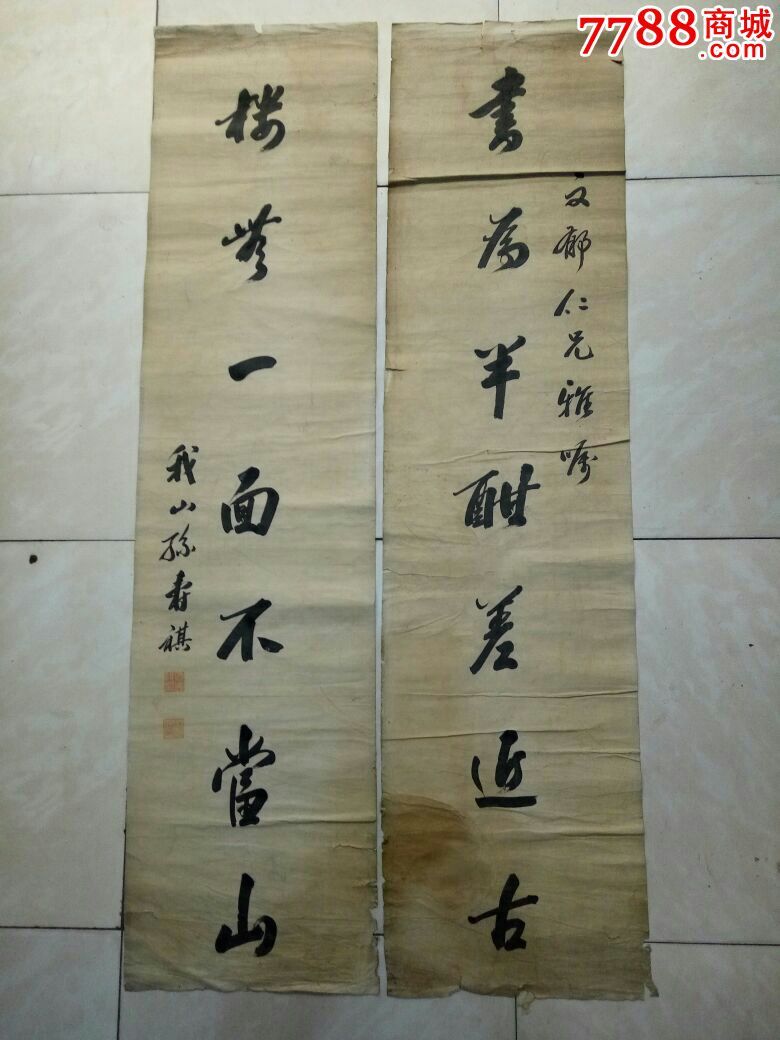 7788商城
.com
文郁仁兄雅嘱
書爲半酣差近古
樓無一面不當山
我山孫壽祺